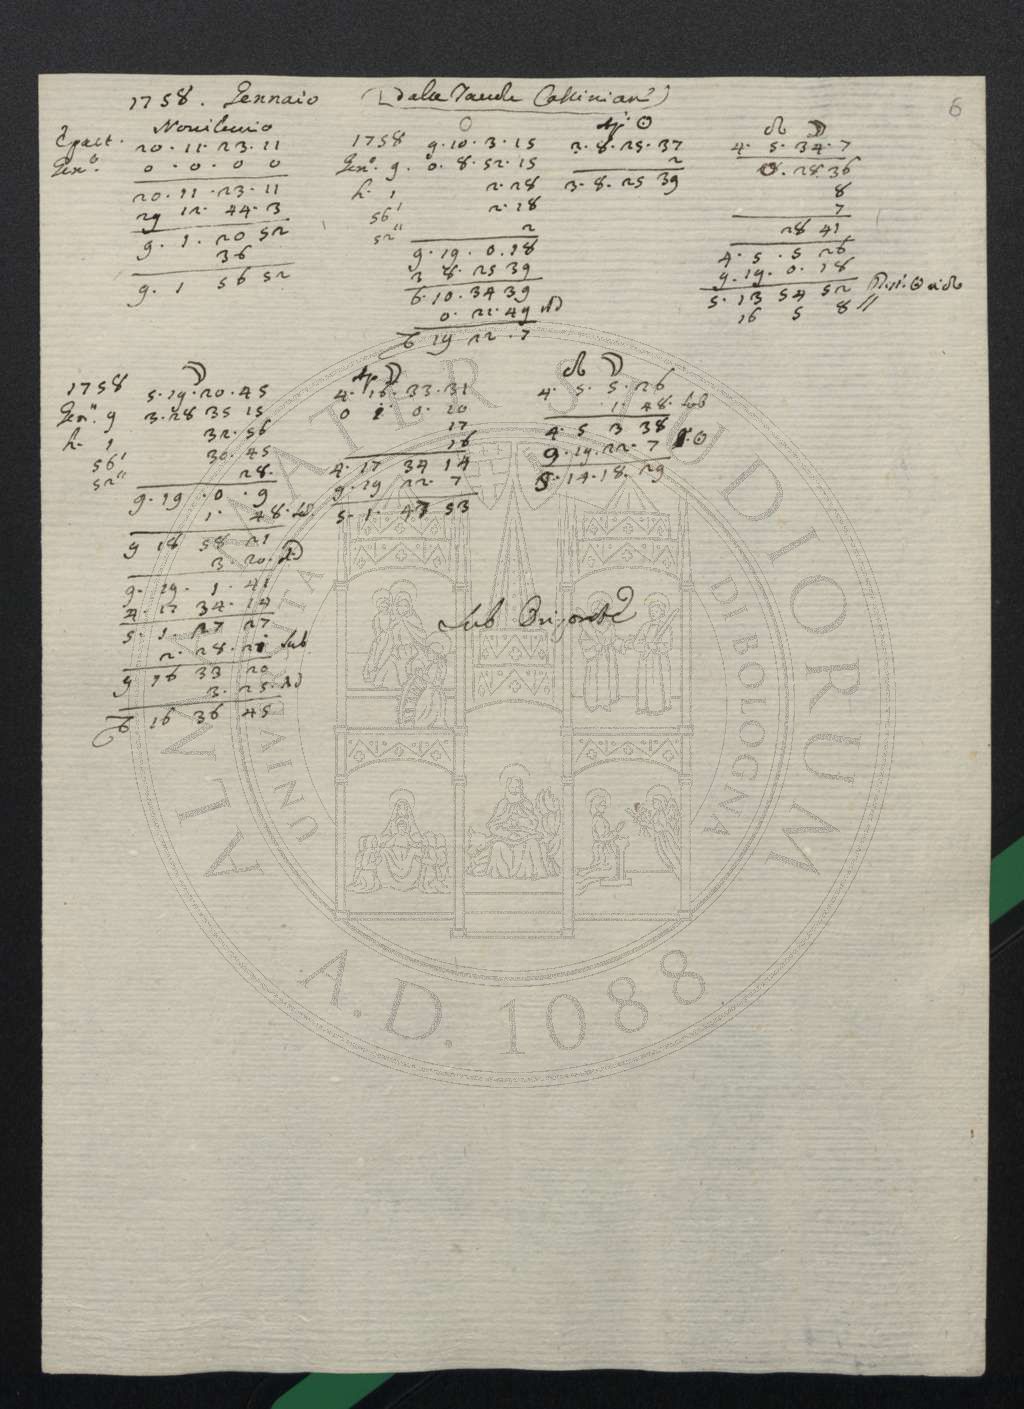 6
1758. Gennaio (Dalle Tavole Cassiniane)
Novilunio
Epact. 20. 11. 23. 11
Gen.o 0. 0. 0. 0
20. 11. 23. 11
29 12. 44. 3
9. 1. 20 52
36
9. 1 56 52
☉
1758 9. 10. 3. 15
Gen.o 9. 0. 8. 52. 15
h. 1 2. 28
56' 2. 18
52" 2
9. 19. 0. 18
3 8. 25 39
6. 10. 34 39
0. 21. 49 Ad
6 19 22. 7
Ap. ☉
3. 8. 25. 37
2
3. 8. 25 39
☊ ☽
4. 5. 34. 7
0. 28. 36
8
7
28 41
4. 5. 5 26
9. 19. 0. 18
5. 13 54 52 Dist. ☉ a ☊
16 5 8 //
☽
1758 5. 19. 20. 45
Gen. 9 3. 28 35 15
h. 1 32. 56
56' 30. 45
52" 28.
9. 19. 0. 9
1. 48. sub
9 18 58 21
3. 20. Ad
9. 19. 1. 41
4. 17 34. 14
5. 1. 27 27
2. 28. 21 Sub
9 16 33 20
3. 25. Ad
6 16 36 45
Ap. ☽
4. 16. 33. 31
0 1. 0. 10
17
16
4. 17 34 14
9. 19 22. 7
5. 1. 47 53
☊ ☽
4. 5. 5. 26
1. 48. sub
4. 5 3 38
9. 19. 22. 7 ☉
5. 14. 18. 29
Sub Orizonte
ALMA MATER STUDIORUM
UNIVERSITA DI BOLOGNA
A.D. 1088